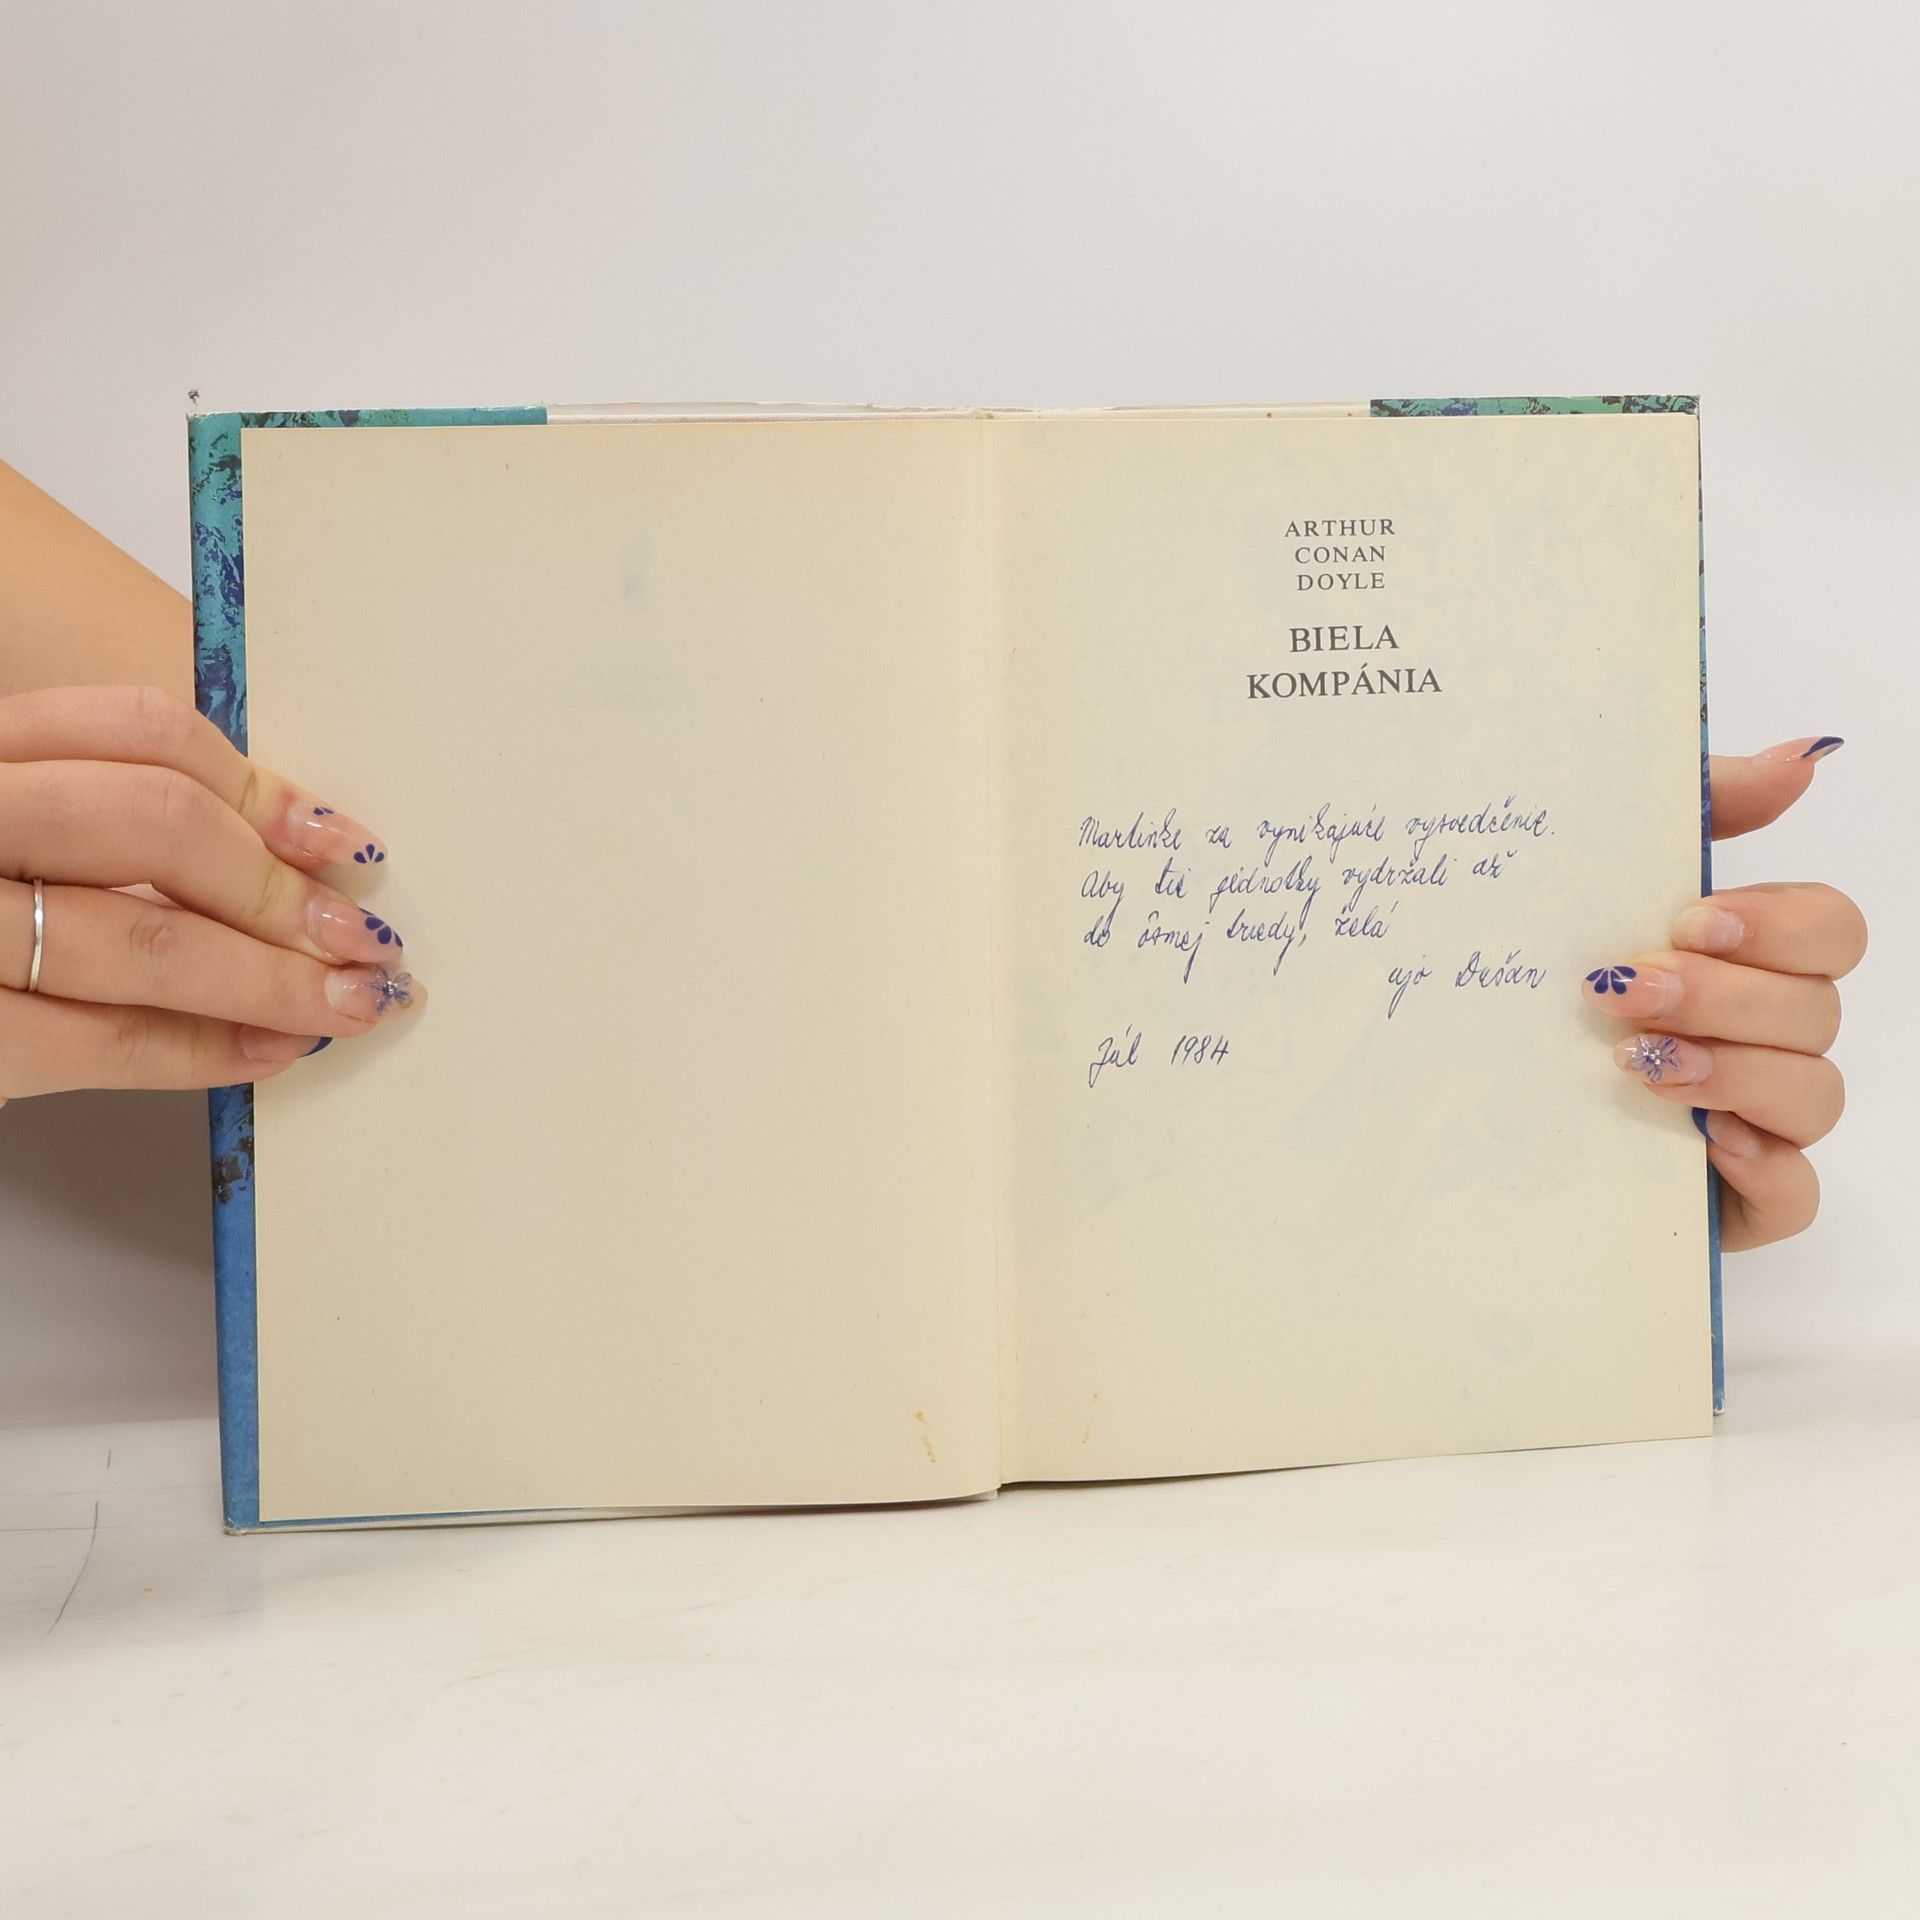 ARTHUR
CONAN
DOYLE
BIELA
KOMPÁNIA
Martinke za vynikajúce vysvedčenie.
Aby tie jednotky vydržali až
do ôsmej triedy, želá
ujo Dušan
Júl 1984